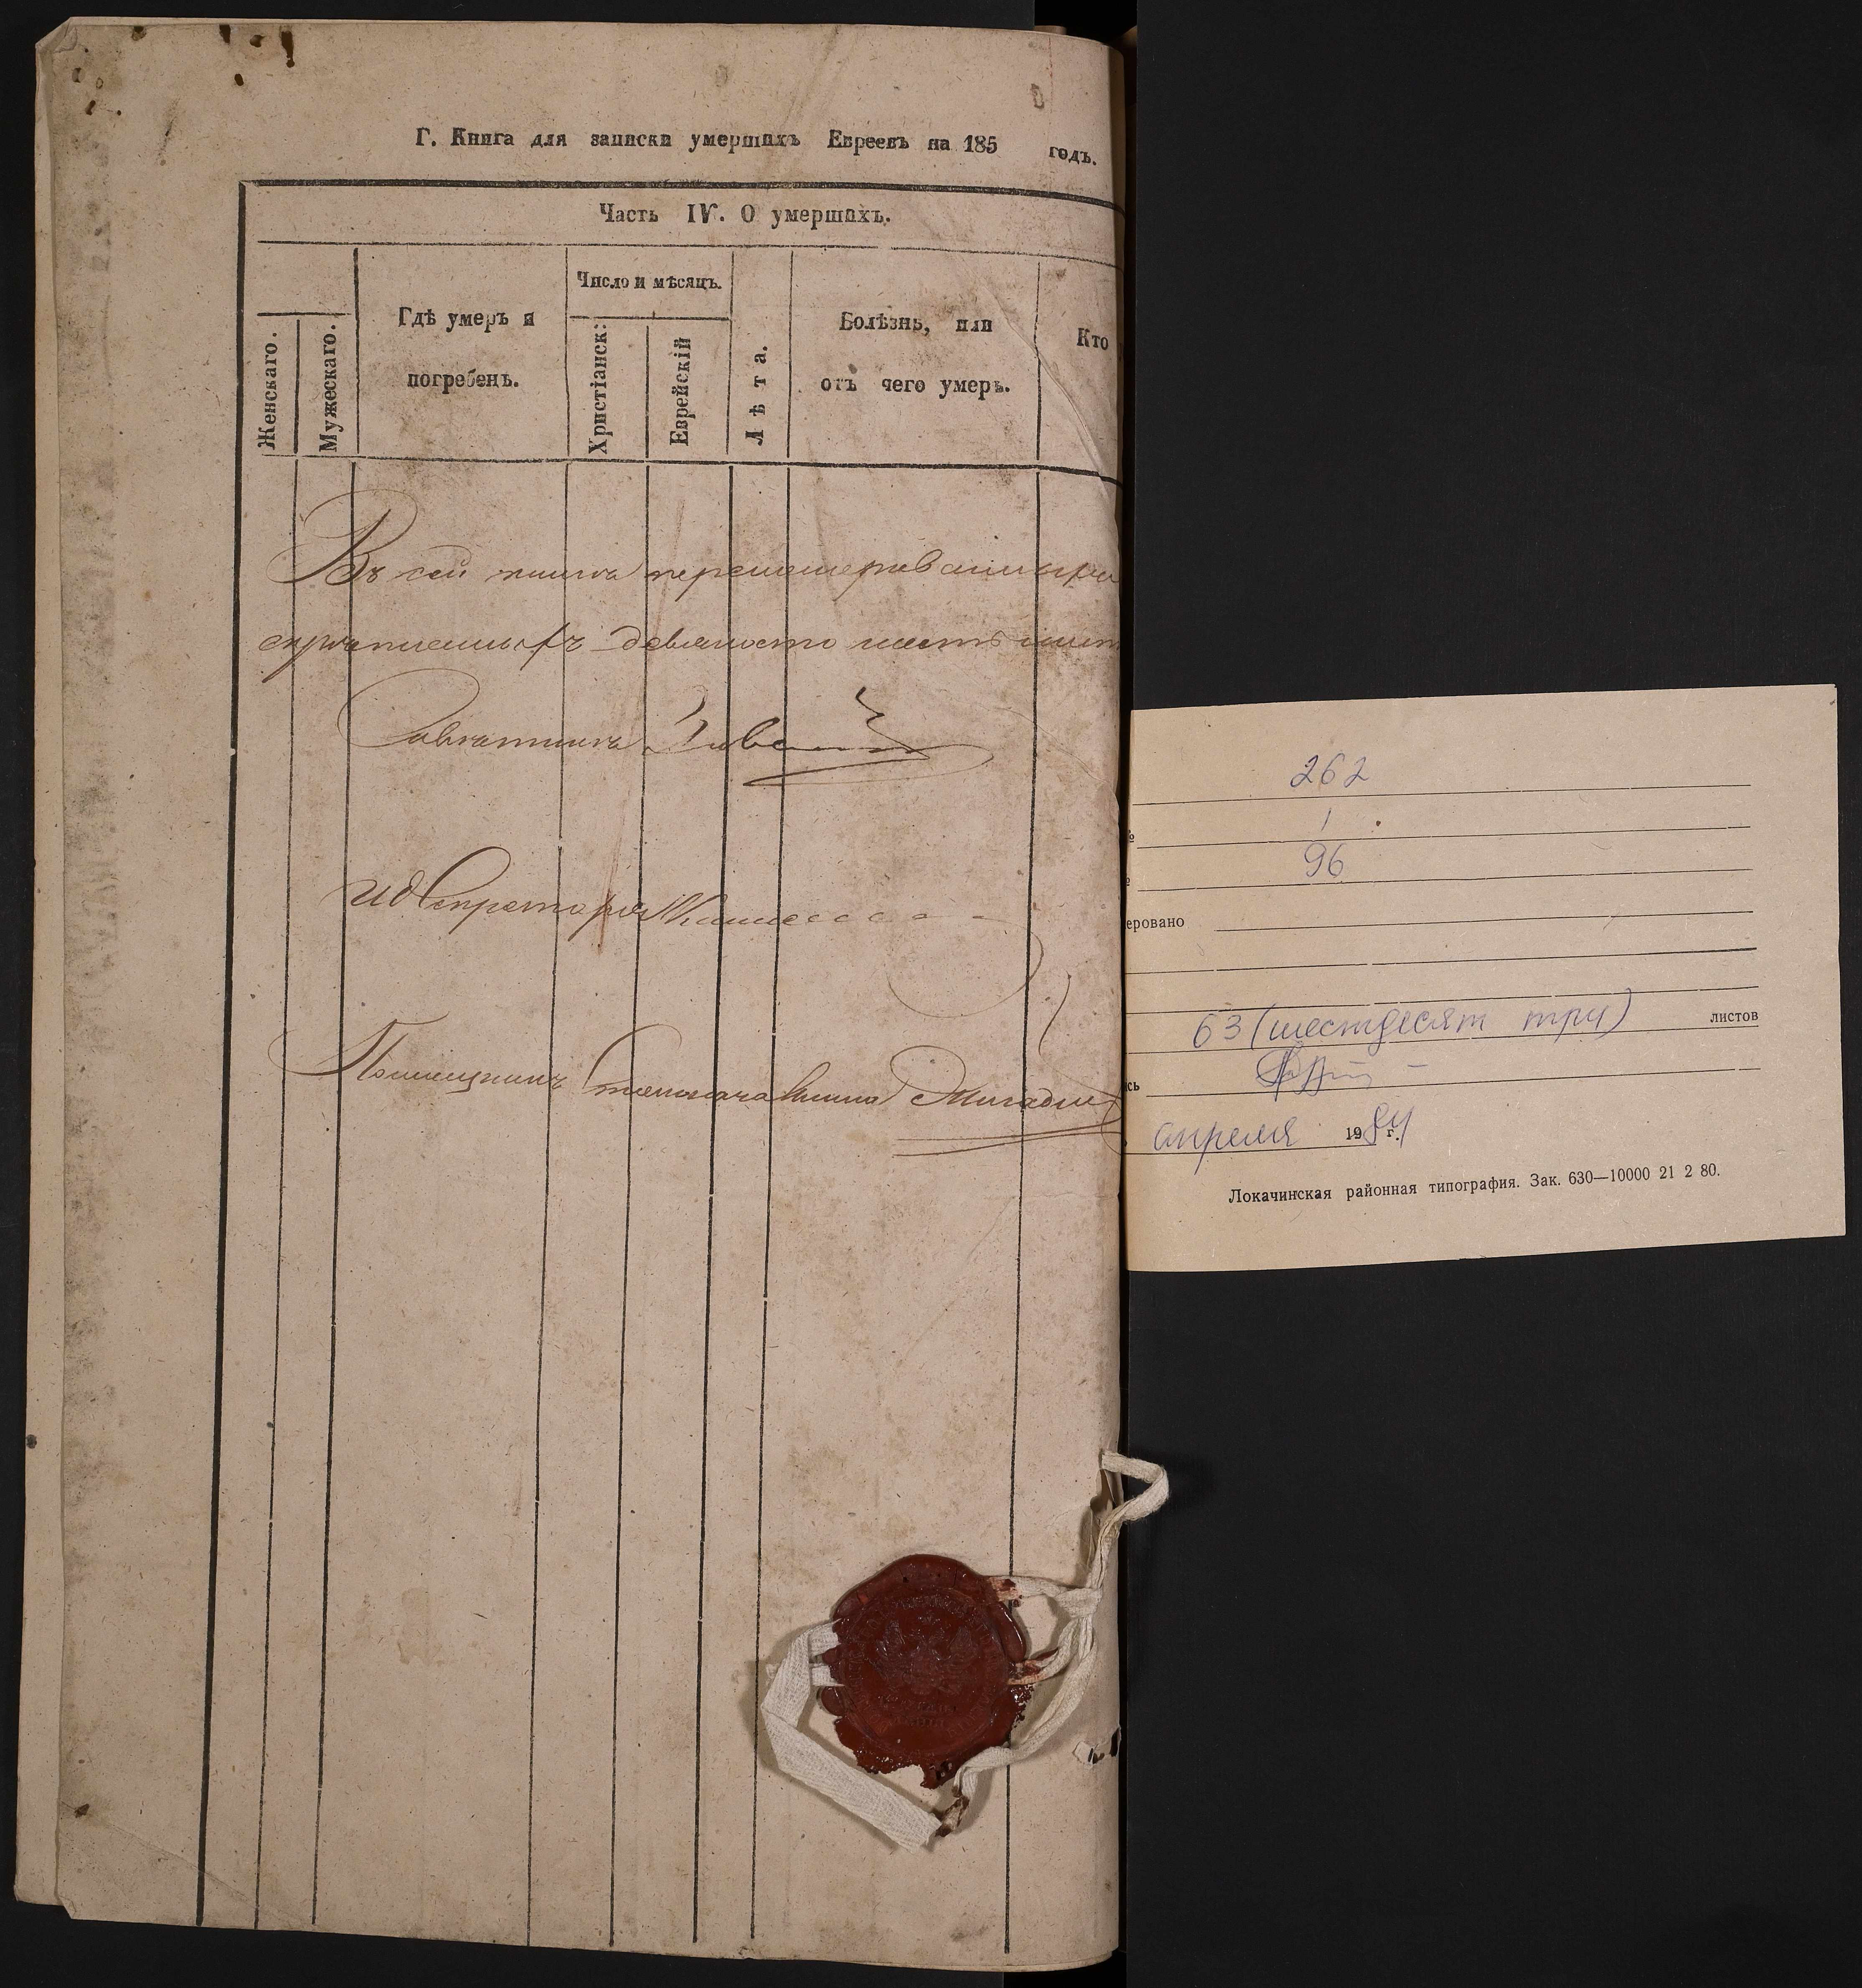 Г. Книга для записки умершихъ Евреевъ на 185 годъ.
Часть IV. О умершихъ.
Женскаго.
Мужескаго.
Гдѣ умеръ и
погребенъ.
Число и мѣсяцъ.
Христіанск:
Еврейскій
Лѣта.
Болѣзнь, или
отъ чего умеръ.
Кто
Въ сей книгѣ
девяносто шесть
ИД Секретаря
Помощникъ Столоначальника
262
1
96
еровано
63 (шестдесят три) листов
сь
апреля 1984 г.
Локачинская районная типография. Зак. 630—10000 21 2 80.